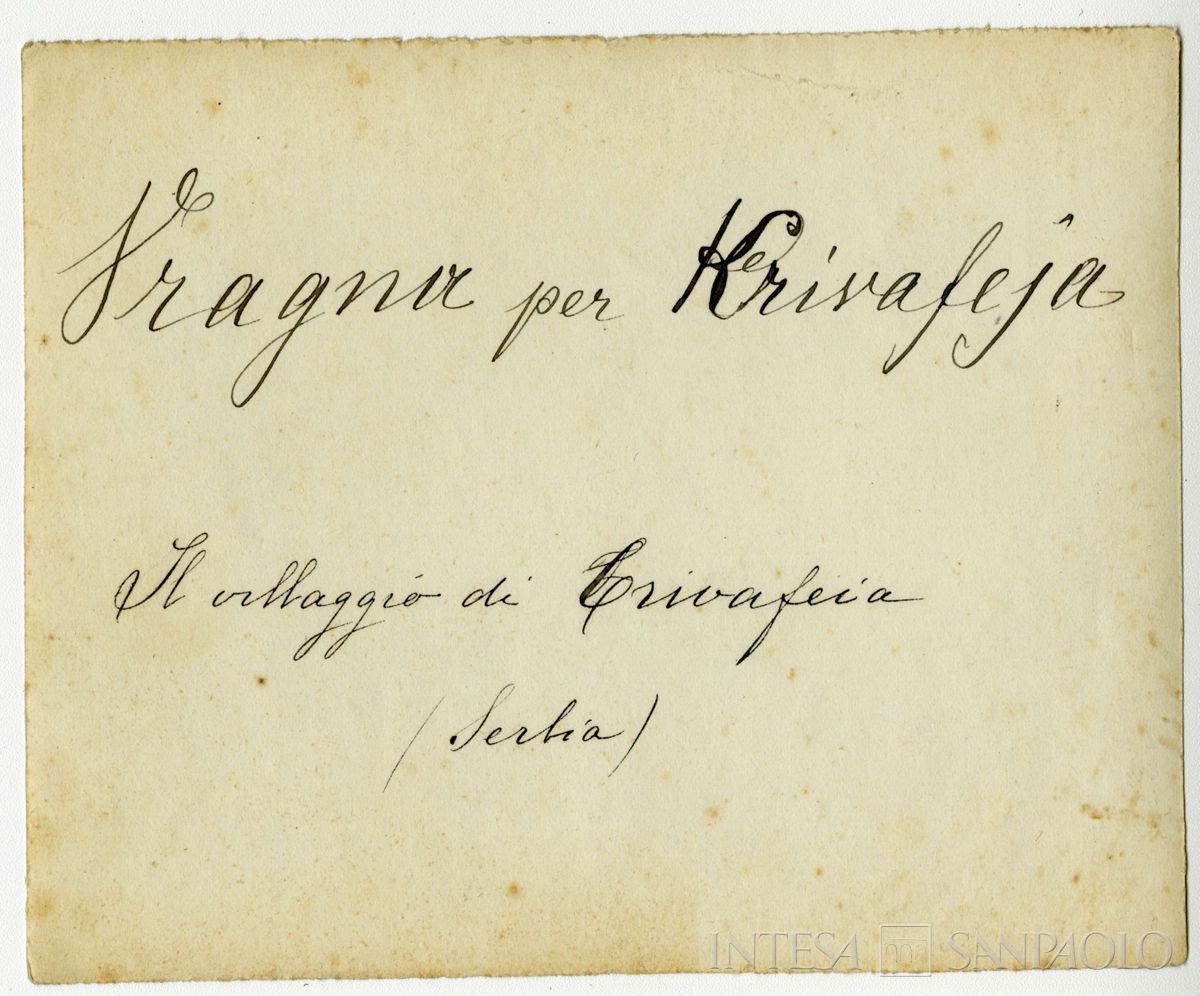 Vragna per Krivafeja
Il villaggio di Crivafeia
(Serbia)
INTESA SANPAOLO